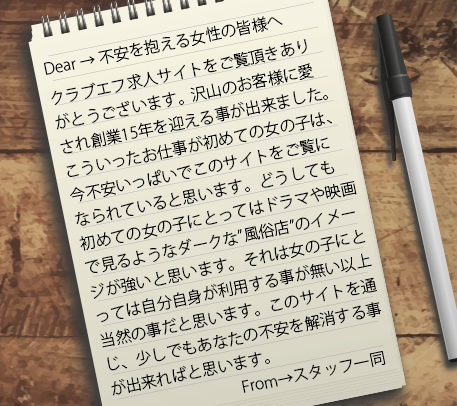 Dear → 不安を抱える女性の皆様へ
クラブエフ求人サイトをご覧頂きあり
がとうございます。沢山のお客様に愛
され創業15年を迎える事が出来ました。
こういったお仕事が初めての女の子は、
今不安いっぱいでこのサイトをご覧に
なられていると思います。どうしても
初めての女の子にとってはドラマや映画
で見るようなダークな"風俗店"のイメー
ジが強いと思います。それは女の子にと
っては自分自身が利用する事が無い以上
当然の事だと思います。このサイトを通
じ、少しでもあなたの不安を解消する事
が出来ればと思います。
From→スタッフ一同